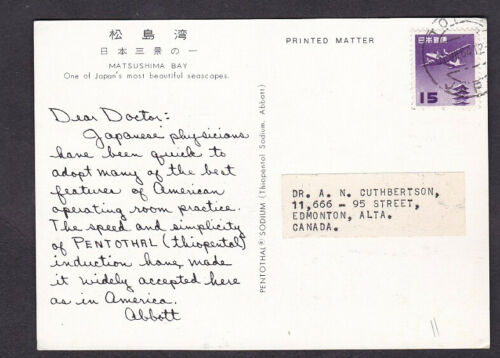 松島湾
日本三景の一
MATSUSHIMA BAY
One of Japan's most beautiful seascapes.
Dear Doctor:
Japanese physicians
have been quick to
adopt many of the best
features of American
operating room practice.
The speed and simplicity
of PENTOTHAL (thiopental)
induction have made
it widely accepted here
as in America.
Abbott
PENTOTHAL® SODIUM (Thiopental Sodium, Abbott)
PRINTED MATTER
日本郵便
15
DR. A. N. CUTHBERTSON,
11,666 - 95 STREET,
EDMONTON, ALTA.
CANADA.
11